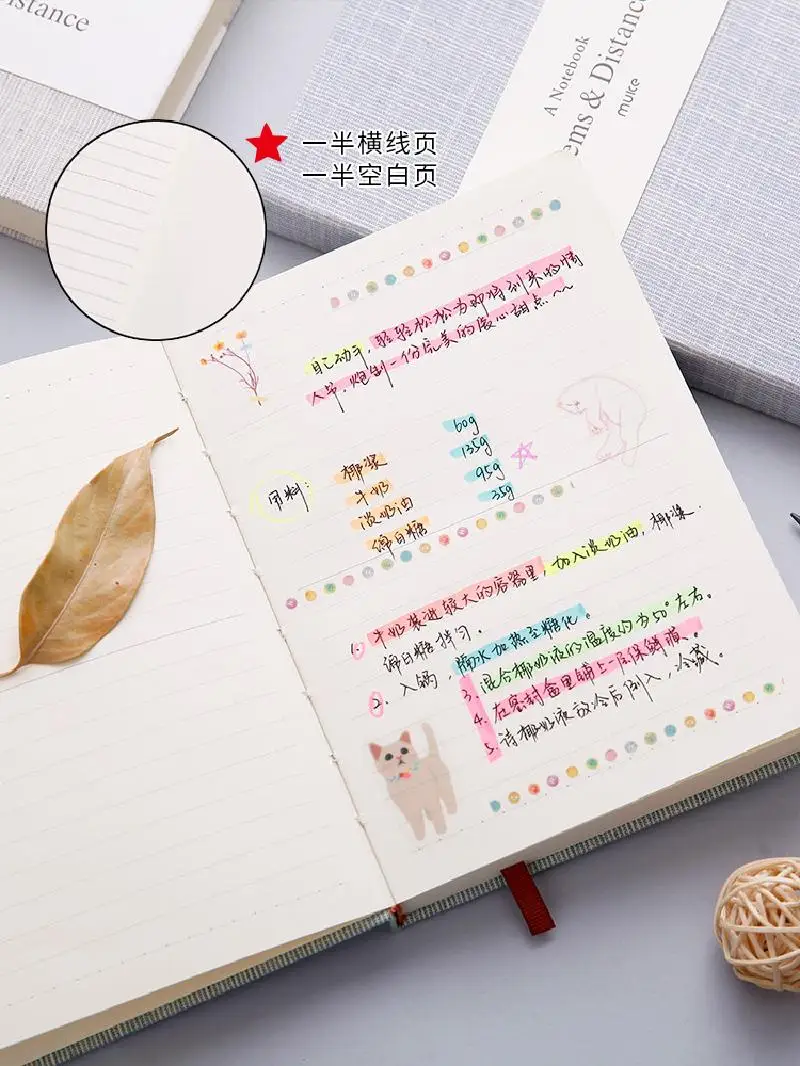 Distance
A Notebook
ems & Distance
muice
一半横线页
一半空白页
自己动手,轻轻松松为即将到来的情
人节,炮制一份完美的暖心甜点~~
用料:
椰浆 60g
牛奶 135g
淡奶油 95g
绵白糖 35g
1. 牛奶装进较大的容器里,加入淡奶油,椰浆.
绵白糖拌匀.
2. 入锅,隔水加热至糖化。
3. 混合椰奶液的温度约为50°左右.
4. 在密封盒里铺上一层保鲜膜。
5. 待椰奶液放冷后倒入,冷藏。